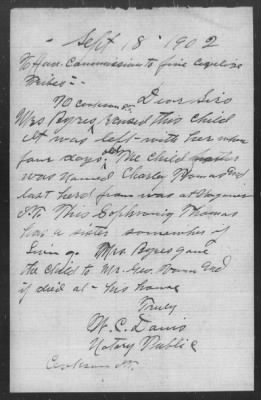 Sept 18 1902
To Hon. Commission to five Civilized
Tribes -
Dear Sirs
Mrs Byres, raised this child
it was left with her when
four days old The child
was named Charley Thomas and
last herd from was at
I.T. This Sophronia Thomas
has a sister somewher if
Living. Mrs. Byres gave
the child to Mr. Geo. and
if died at - his house
Truly
W. C. Davis
Notary Public
Cookson I.T.